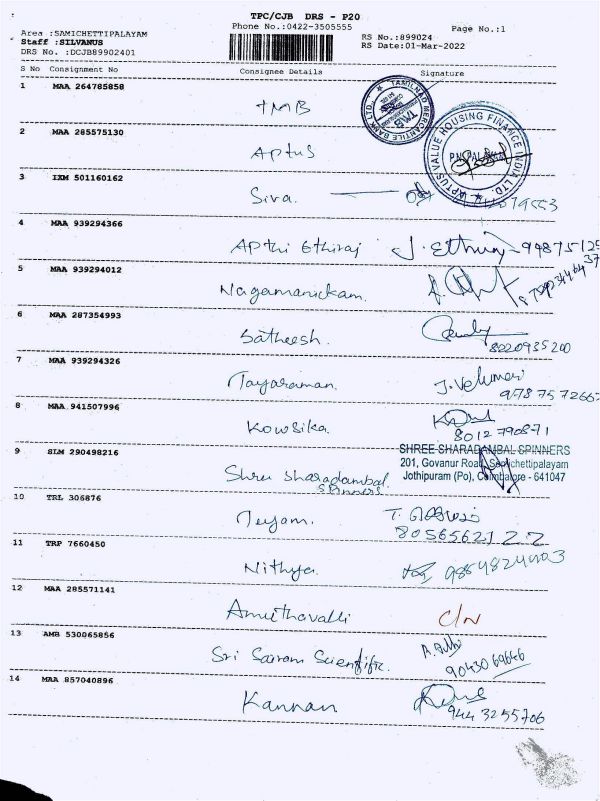 TPC/CJB DRS - P20
Phone No.:0422-3505555
Page No.:1
Area :SAMICHETTIPALAYAM
Staff :SILVANUS
DRS No. :DCJB89902401
RS No.:899024
RS Date:01-Mar-2022
S No Consignment No Consignee Details Signature
1 MAA 264785858
TMB
TAMILNAD MERCANTILE BANK LTD.
TMB
2 MAA 285575130
Aptus
APTUS VALUE HOUSING FINANCE INDIA LTD.
3 IXM 501160162
Siva.
4 MAA 939294366
Apthi Ethiraj J. Ethiraj
5 MAA 939294012
Nagamanickam.
6 MAA 287354993
Satheesh.
8220935200
7 MAA 939294326
Jayaraman. J. Velumani
8 MAA 941507996
Kowsika.
8012790871
9 SLM 290498216
Shree Sharadambal Spinners
SHREE SHARADAMBAL SPINNERS
201, Govanur Road, Samichettipalayam
Jothipuram (Po), Coimbatore - 641047
10 TRL 306876
Jeyam.
8056562122
11 TRP 7660450
Nithya 9854824403
12 MAA 285571141
Amuthavalli C/N
13 AMB 530065856
Sri Sairam Scientific.
9043069646
14 MAA 857040896
Kannan
9443255706